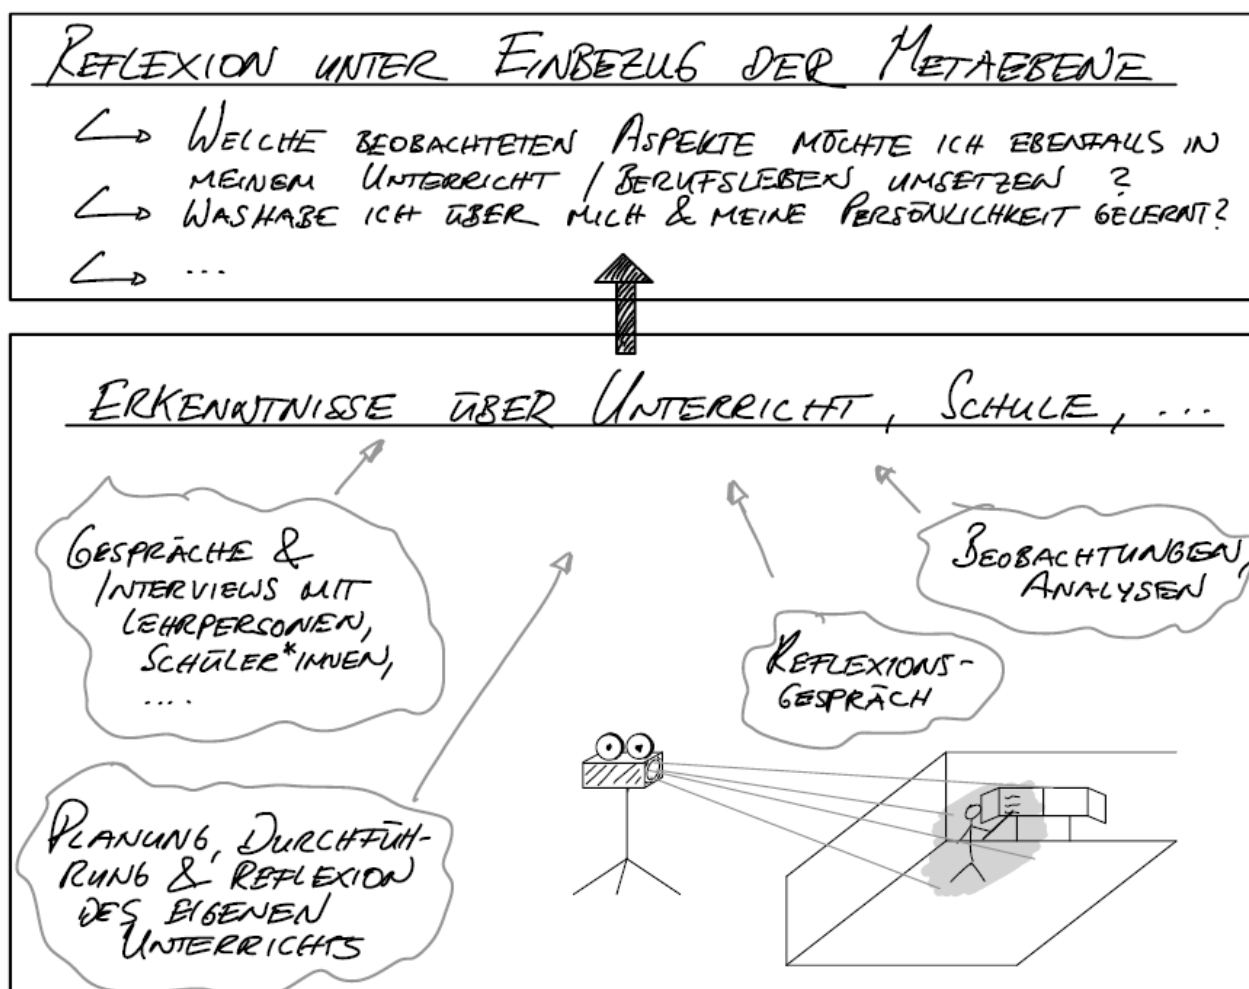 REFLEXION UNTER EINBEZUG DER METAEBENE
WELCHE BEOBACHTETEN ASPEKTE MÖCHTE ICH EBENFALLS IN
MEINEM UNTERRICHT / BERUFSLEBEN UMSETZEN ?
WAS HABE ICH ÜBER MICH & MEINE PERSÖNLICHKEIT GELERNT?
...
ERKENNTNISSE ÜBER UNTERRICHT, SCHULE, ...
GESPRÄCHE &
INTERVIEWS MIT
LEHRPERSONEN,
SCHÜLER*INNEN,
....
BEOBACHTUNGEN,
ANALYSEN
REFLEXIONS-
GESPRÄCH
PLANUNG, DURCHFÜH-
RUNG & REFLEXION
DES EIGENEN
UNTERRICHTS